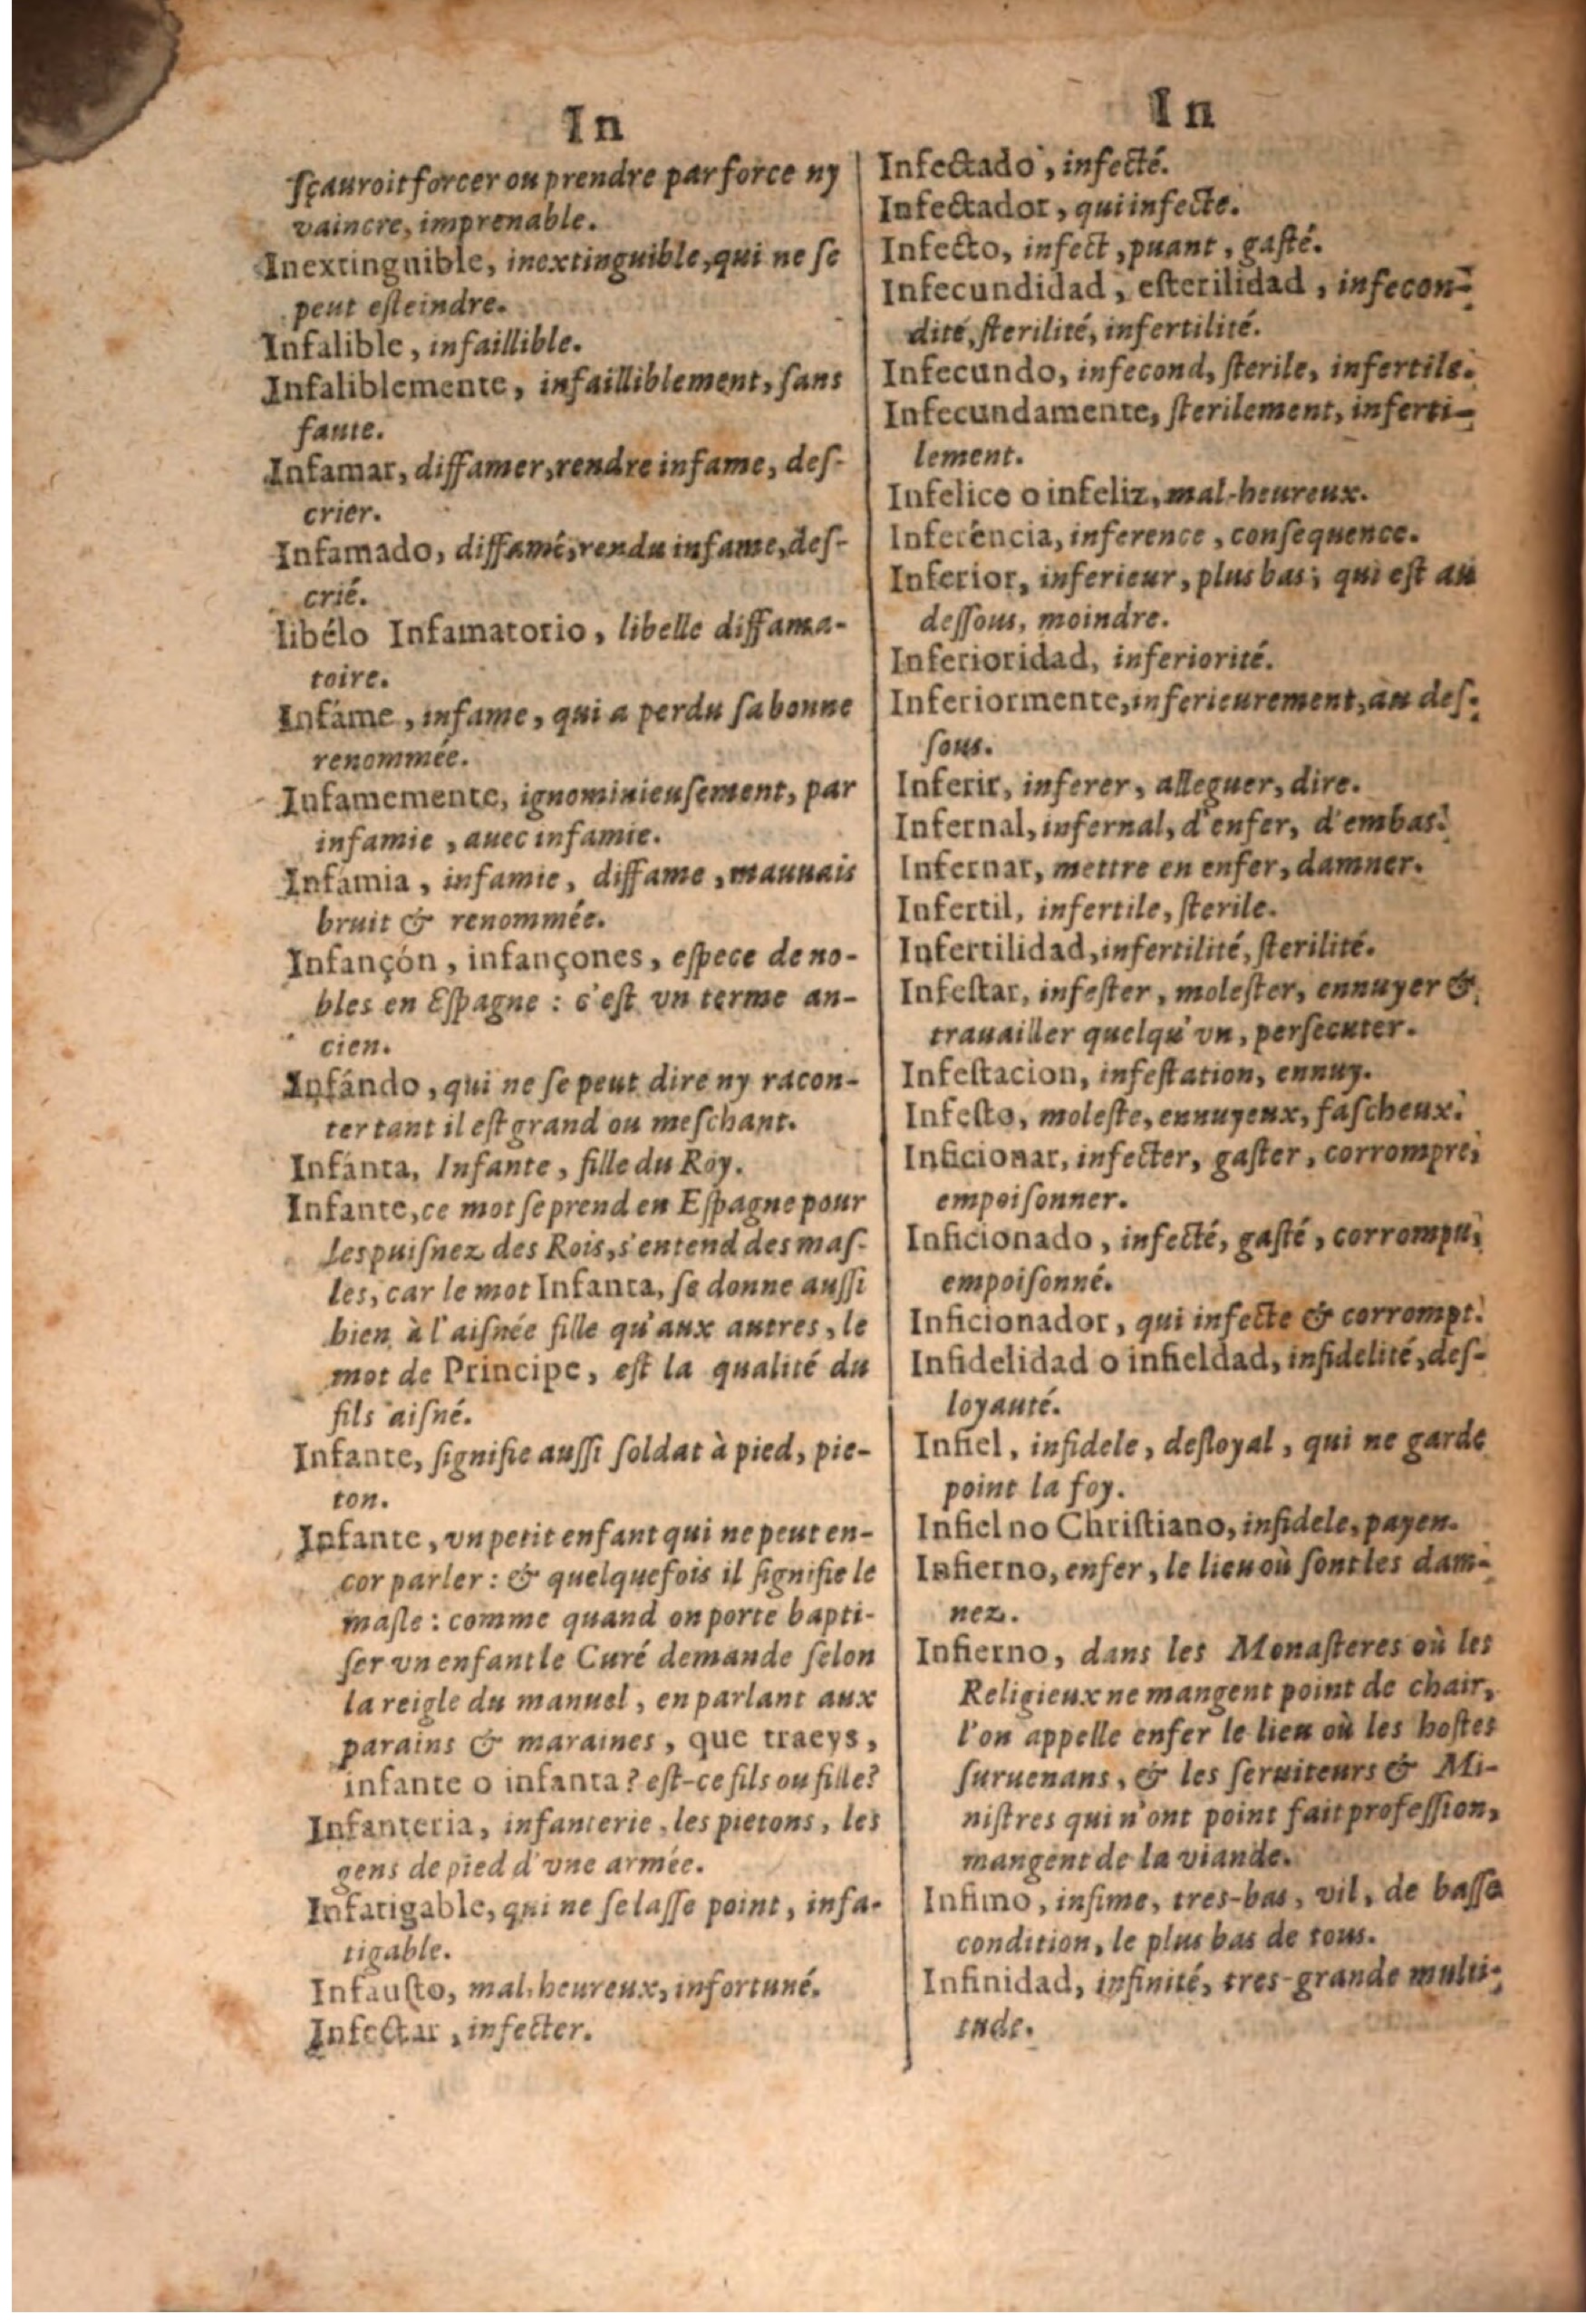 In
ſçauroit forcer ou prendre par force ny
vaincre, imprenable.
Inextinguible, inextinguible, qui ne ſe
peut eſteindre.
Infalible, infaillible.
Infaliblemente, infailliblement, ſans
faute.
Infamar, diffamer, rendre infame, deſ-
crier.
Infamado, diffamé, rendu infame, deſ-
crié.
libélo Infamatorio, libelle diffama-
toire.
Infáme, infame, qui a perdu ſa bonne
renommée.
Infamemente, ignominieuſement, par
infamie, auec infamie.
Infámia, infamie, diffame, mauuais
bruit & renommée.
Infançón, infançones, eſpece de no-
bles en Eſpagne : c'eſt vn terme an-
cien.
Infándo, qui ne ſe peut dire ny racon-
ter tant il eſt grand ou meſchant.
Infánta, Infante, fille du Roy.
Infante, ce mot ſe prend en Eſpagne pour
les puiſnez des Rois, s'entend des maſ-
les, car le mot Infanta, ſe donne auſſi
bien à l'aiſnée fille qu'aux autres, le
mot de Principe, eſt la qualité du
fils aiſné.
Infante, ſignifie auſſi ſoldat à pied, pie-
ton.
Infante, vn petit enfant qui ne peut en-
cor parler : & quelquefois il ſignifie le
maſle : comme quand on porte bapti-
ſer vn enfant le Curé demande ſelon
la reigle du manuel, en parlant aux
parains & maraines, que traeys,
infante o infanta? eſt-ce fils ou fille?
Infanteria, infanterie, les pietons, les
gens de pied d'vne armée.
Infatigable, qui ne ſe laſſe point, infa-
tigable.
Infauſto, mal-heureux, infortuné.
Infectar, infecter.
In
Infectado, infecté.
Infectador, qui infecte.
Infecto, infect, puant, gaſté.
Infecundidad, eſterilidad, infecon-
dité, ſterilité, infertilité.
Infecundo, infecond, ſterile, infertile.
Infecundamente, ſterilement, inferti-
lement.
Infelice o infeliz, mal-heureux.
Inferéncia, inference, conſequence.
Inferior, inferieur, plus bas, qui eſt au
deſſous, moindre.
Inferioridad, inferiorité.
Inferiormente, inferieurement, au deſ-
ſous.
Inferir, inferer, alleguer, dire.
Infernal, infernal, d'enfer, d'embas.
Infernar, mettre en enfer, damner.
Infertil, infertile, ſterile.
Infertilidad, infertilité, ſterilité.
Infeſtar, infeſter, moleſter, ennuyer &
trauailler quelqu'vn, perſecuter.
Infeſtacion, infeſtation, ennuy.
Infeſto, moleſte, ennuyeux, faſcheux.
Inficionar, infecter, gaſter, corrompre,
empoiſonner.
Inficionado, infecté, gaſté, corrompu,
empoiſonné.
Inficionador, qui infecte & corrompt.
Infidelidad o infieldad, infidelité, deſ-
loyauté.
Infiel, infidele, deſloyal, qui ne garde
point la foy.
Infiel no Chriſtiano, infidele, payen.
Infierno, enfer, le lieu où ſont les dam-
nez.
Infierno, dans les Monaſteres où les
Religieux ne mangent point de chair,
l'on appelle enfer le lieu où les hoſtes
ſuruenans, & les ſeruiteurs & Mi-
niſtres qui n'ont point fait profeſſion,
mangent de la viande.
Infimo, infime, tres-bas, vil, de baſſe
condition, le plus bas de tous.
Infinidad, infinité, tres-grande multi-
tude.